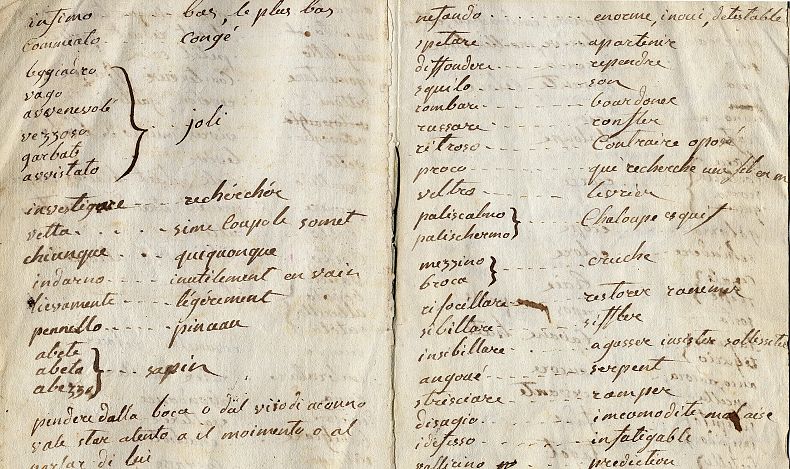 infimo . . . . . . bas, le plus bas
commiato . . . . congé
leggiadro
vago
avvenevolé
vezzoso
garbato
avvistato
joli
investigare . . . . rechérchér
vetta . . . . . sime Coupole somet
chiunque . . . . quiquonque
indarno . . . . inutilement en vain
lievamente . . . . légérement
pennello . . . . pinceau
abete
abeta
abezzo
sapin
pendere dalla boca o dal viso di alcuno
vale star atento a il moimento o al
parlar di lui
nefando . . . . . enorme, inoui, detestable
spetare . . . . . apartenir
diffondere . . . . . rependre
squilo . . . . . son
rombare . . . . . bourdoner
russare . . . . . ronfler
ritroso . . . . . Contraire oposé
proco . . . . . qui recherche une fil en m
veltro . . . . . levrier
paliscalmo
palischermo
Chaloupe esquif
mezzino
broca
cruche
rifocillare . . . . restorer ranimer
sibillare . . . . . siffler
insibillare . . . . . agasser insister
angoué . . . . . serpent
strisciare . . . . . ramper
disagio . . . . . incomodite mal aise
idefesso . . . . . infatigable
prediction